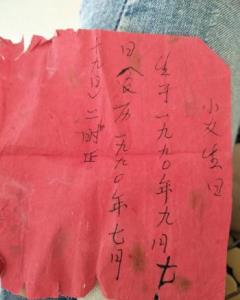 小女生日
生于一九九〇年九月七
日(农历一九九〇年七月
十九日)二时正